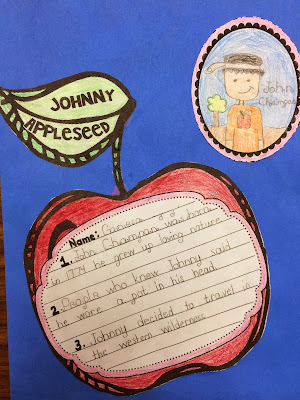 JOHNNY
APPLESEED
John
Chapman
Name:
1. John Chapman was born
in 1774 he grew up loving nature.
2. People who knew Johnny said
he wore a pot in his head.
3. Johnny decided to travel in
the western wilderness